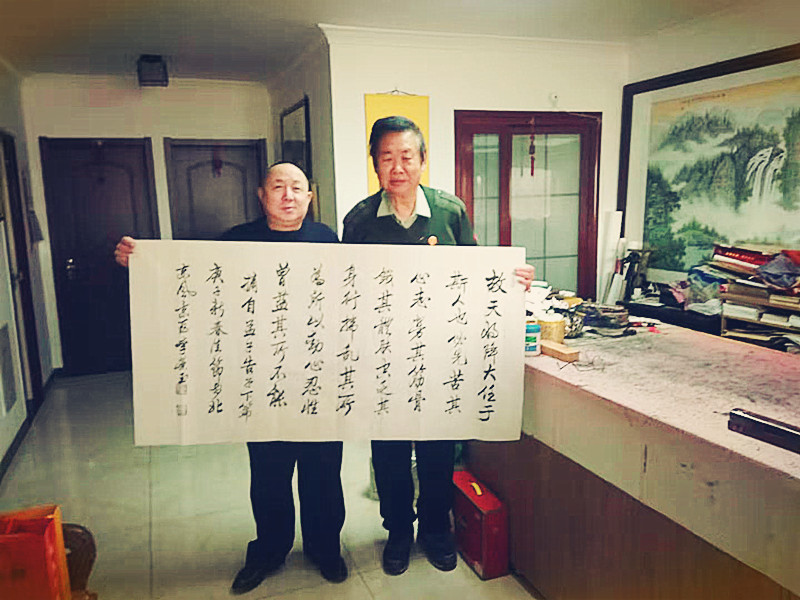 故天将降大任于
斯人也必先苦其
心志劳其筋骨
饿其体肤空乏其
身行拂乱其所
为所以动心忍性
曾益其所不能
摘自孟子告子下篇
庚子新春佳节书北
京